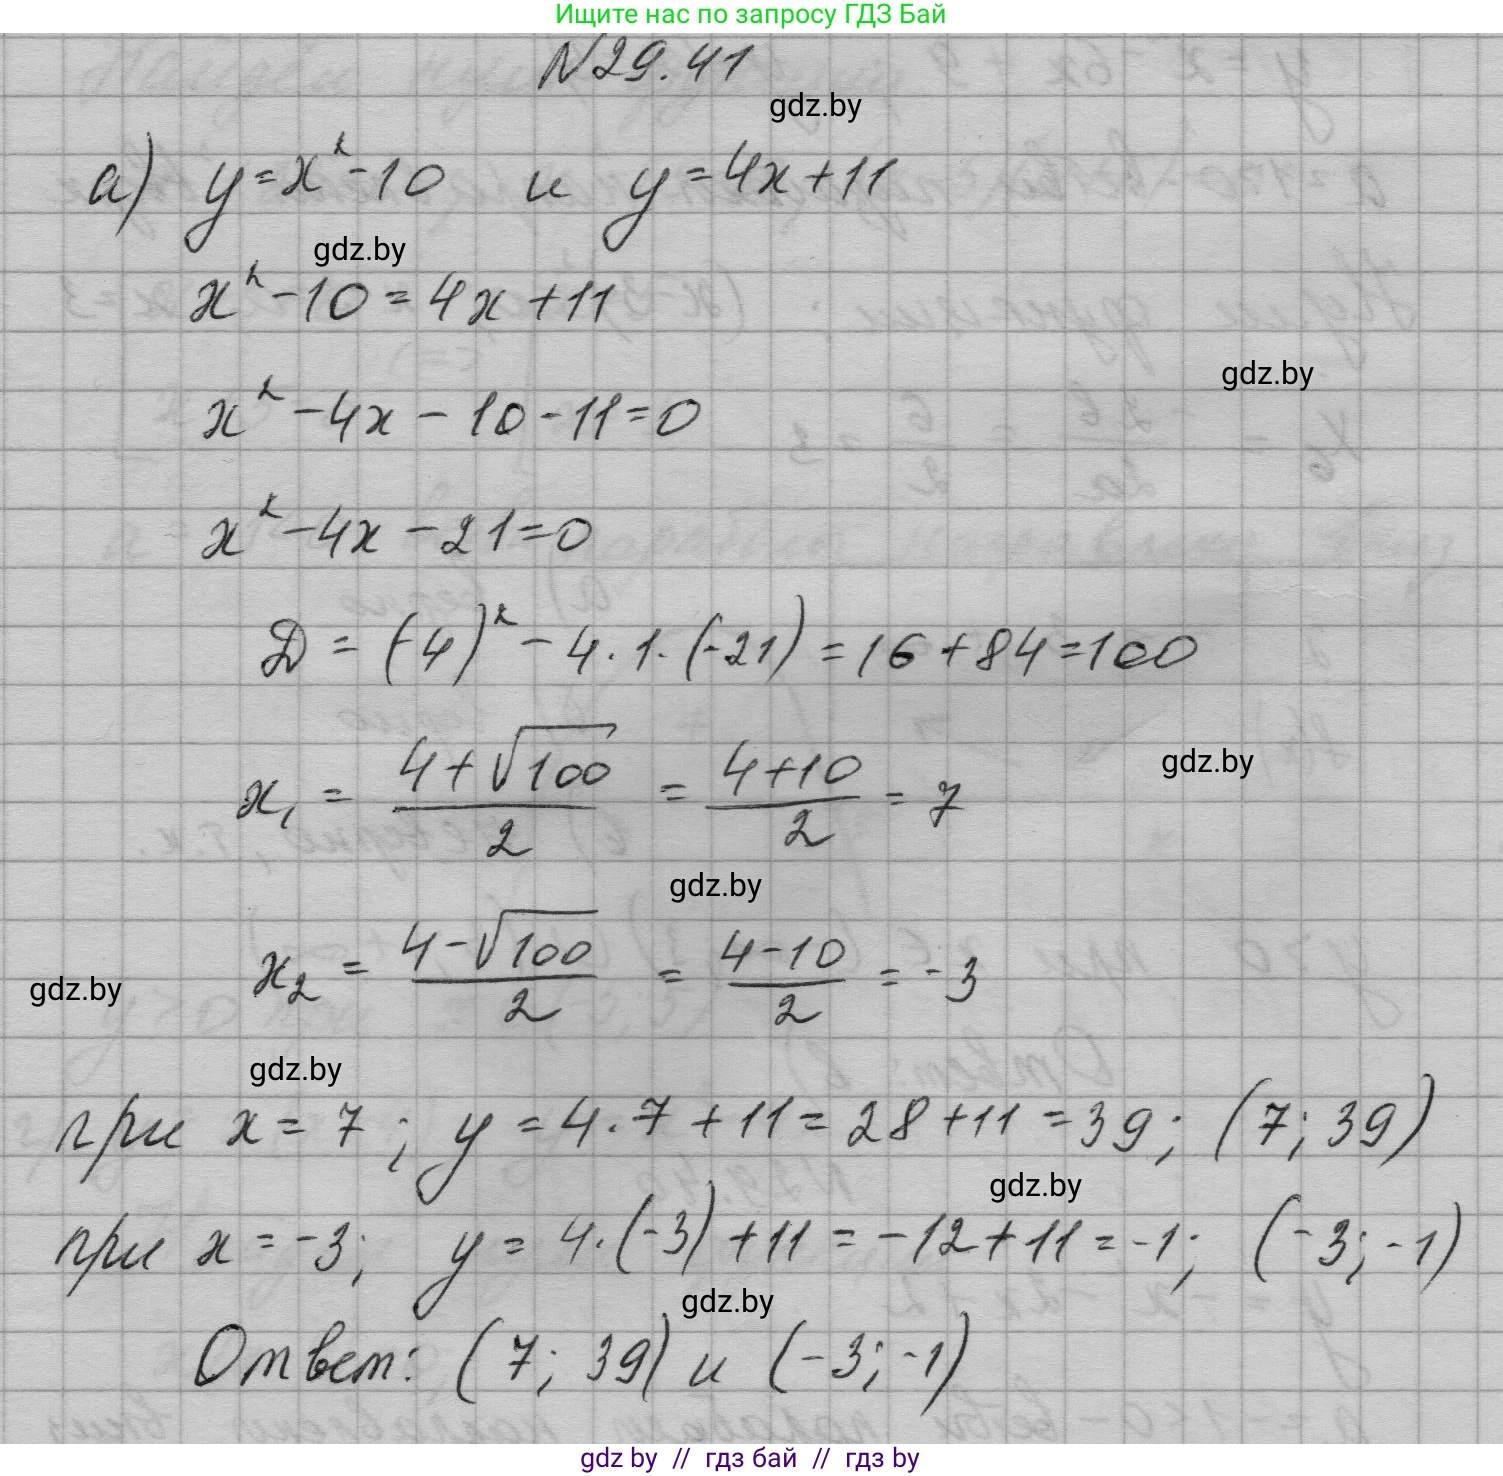 Ищите нас по запросу ГДЗ Бай
N29.41
gdz.by
а) y=x²-10 и y=4x+11
gdz.by
x²-10=4x+11
gdz.by
x²-4x-10-11=0
x²-4x-21=0
D=(-4)²-4·1·(-21)=16+84=100
x₁ = (4+√100)/2 = (4+10)/2 = 7
gdz.by
gdz.by
x₂ = (4-√100)/2 = (4-10)/2 = -3
gdz.by
gdz.by
при x=7; y=4·7+11=28+11=39; (7;39)
gdz.by
при x=-3; y=4·(-3)+11=-12+11=-1; (-3;-1)
gdz.by
Ответ: (7;39) и (-3;-1)
gdz by // гдз бай // gdz by